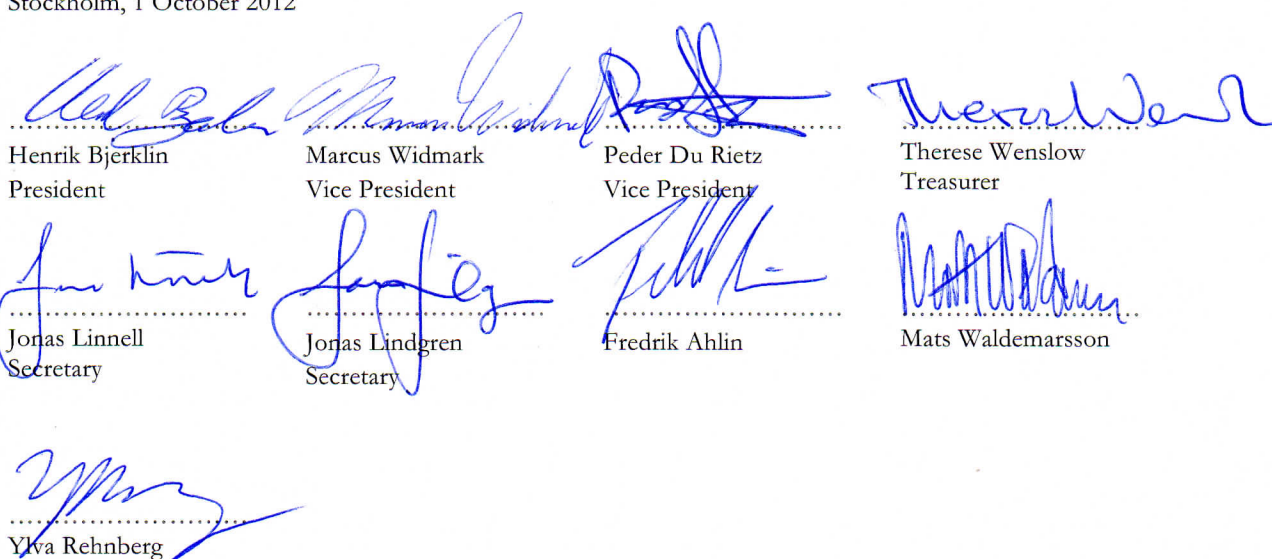 Stockholm, 1 October 2012
Henrik Bjerklin
President
Marcus Widmark
Vice President
Peder Du Rietz
Vice President
Therese Wenslow
Treasurer
Jonas Linnell
Secretary
Jonas Lindgren
Secretary
Fredrik Ahlin
Mats Waldemarsson
Ylva Rehnberg